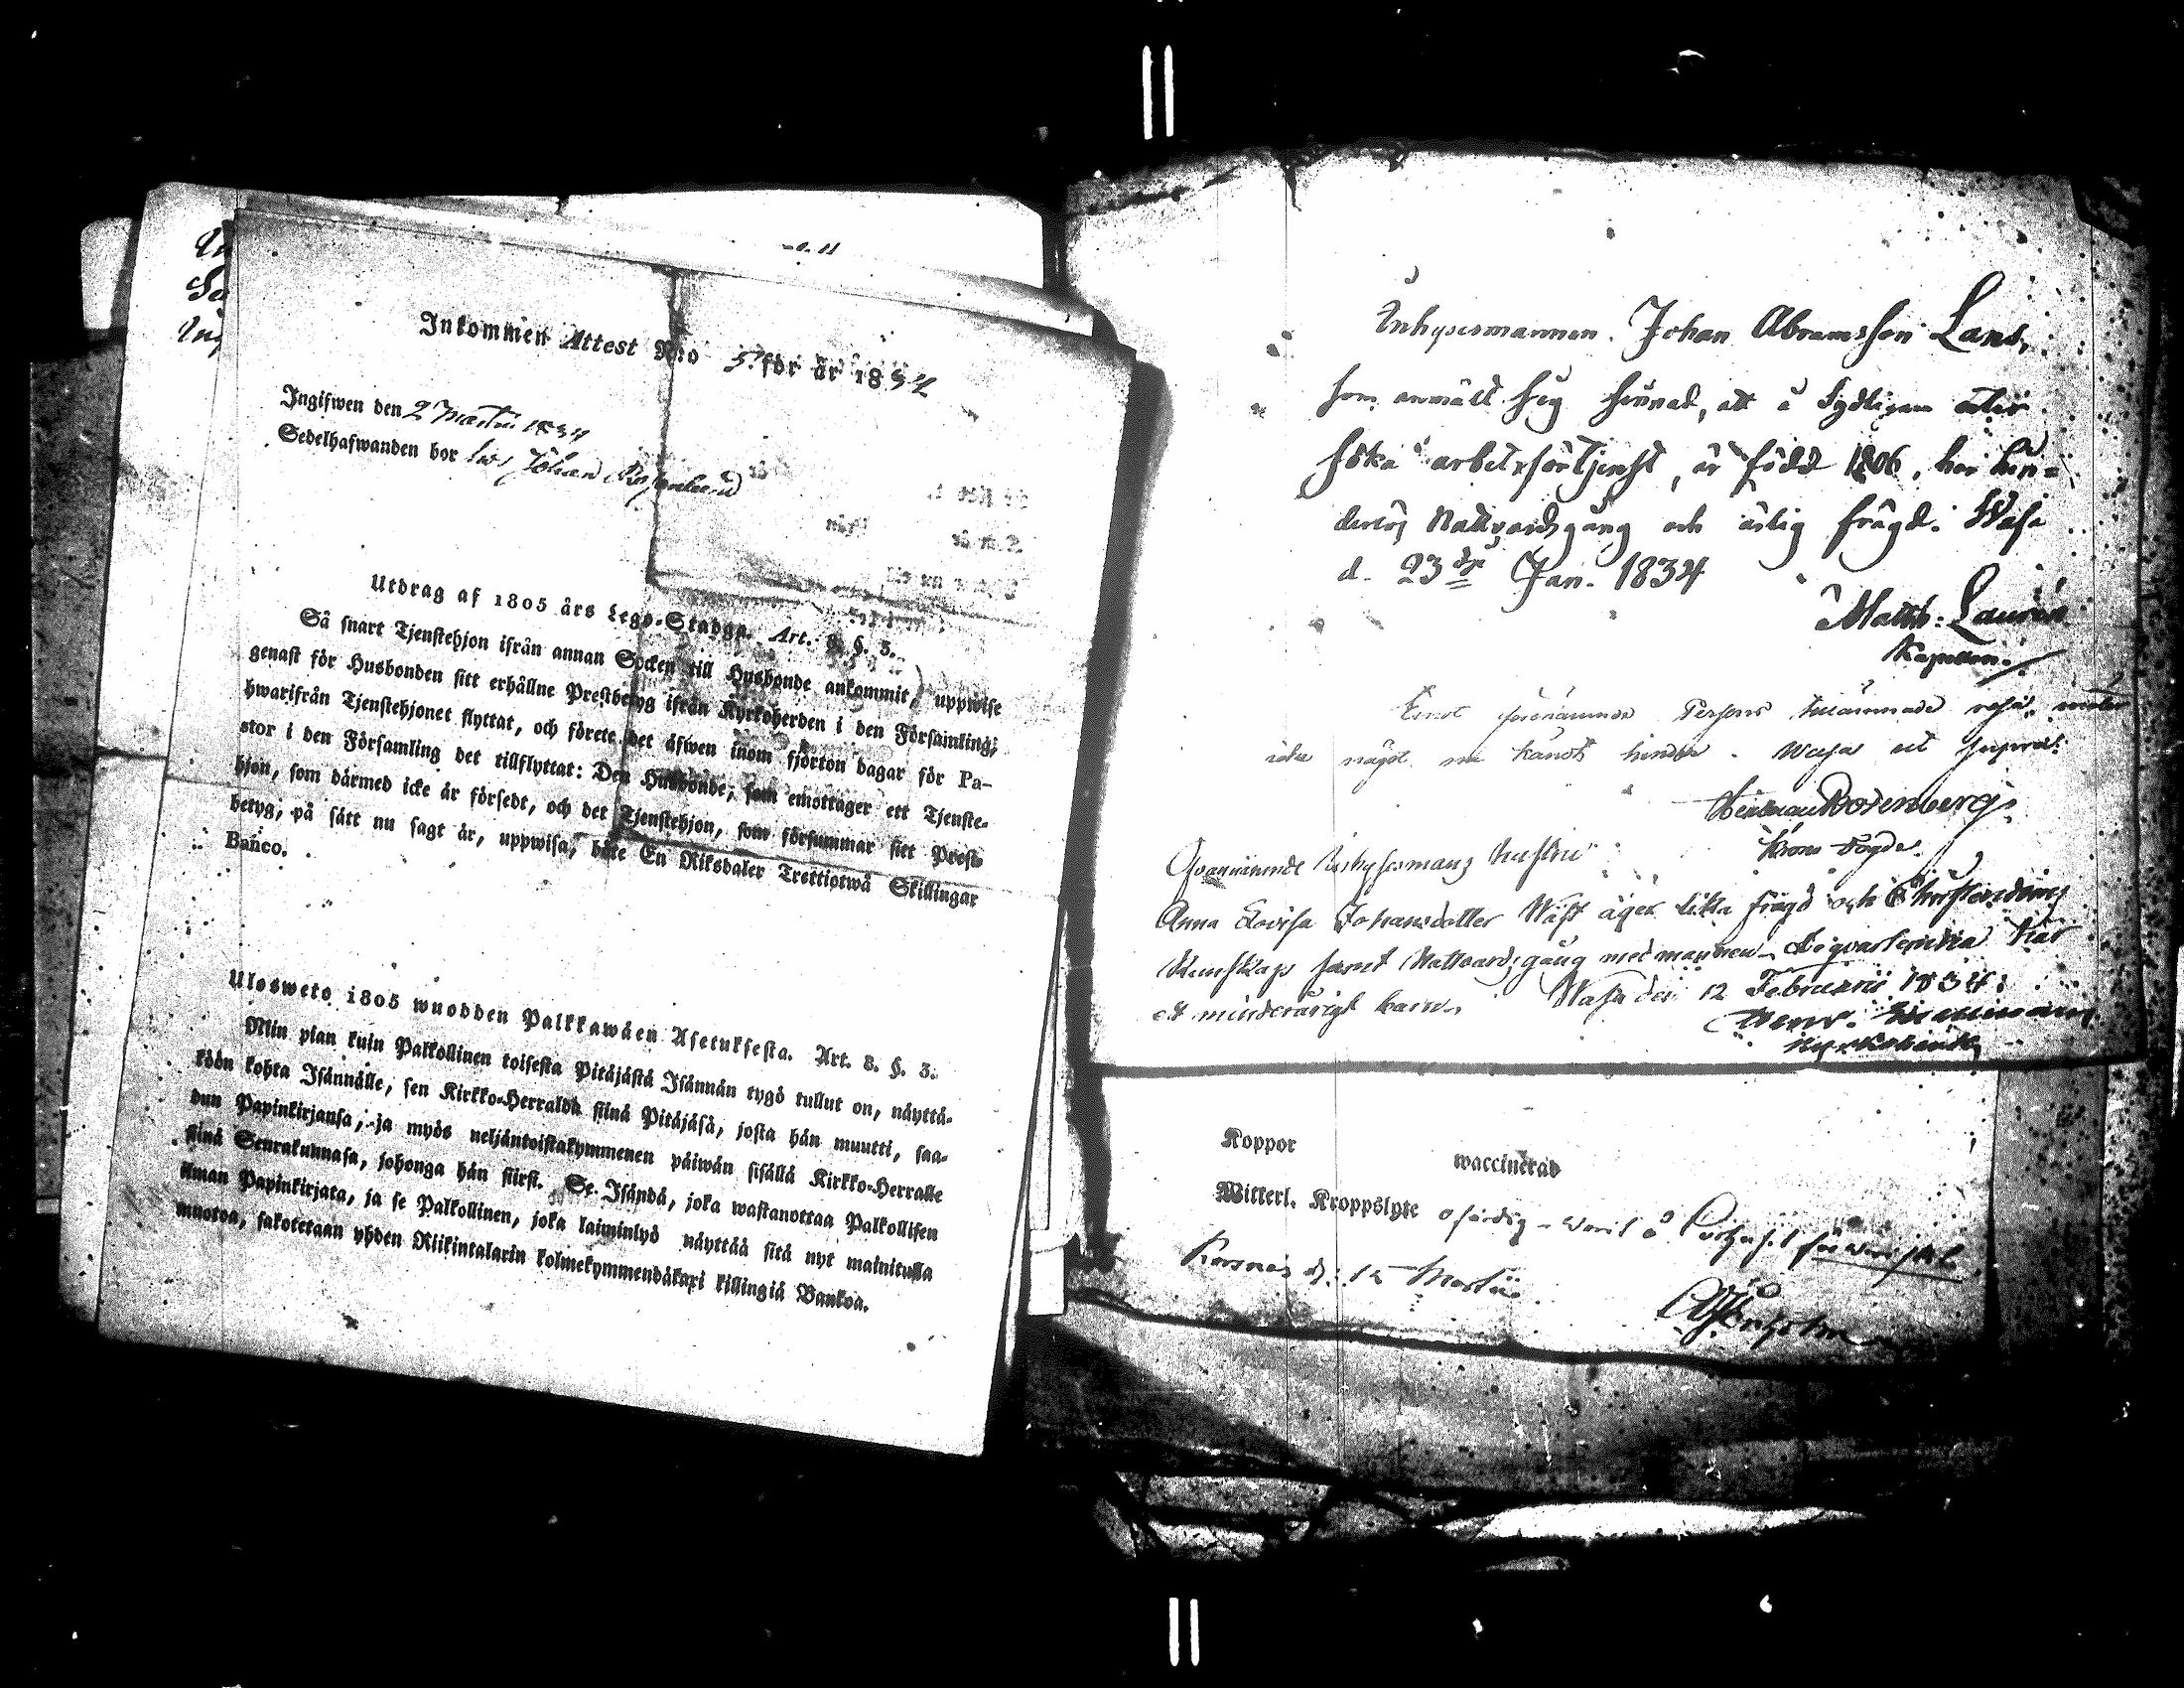 Inkommen Attest N:o 5. för år 1834
Ingifwen den 2 Martii 1834
Sedelhafwanden bor hos Johan
Utdrag af 1805 års Lego-Stadga. Art. 8. §. 3.
Så snart Tjenstehjon ifrån annan Socken till Husbonde ankommit, uppwise
genast för Husbonden sitt erhållne Prestbetyg ifrån Kyrkoherden i den Församling,
hwarifrån Tjenstehjonet flyttat, och förete det äfwen inom fjorton dagar för Pa-
stor i den Församling det tillflyttat: Den Husbonde, som emottager ett Tjenste-
hjon, som därmed icke är försedt, och det Tjenstehjon, som försummar sitt Prest-
betyg, på sätt nu sagt är, uppwisa, böte En Riksdaler Trettiotwå Skillingar
Banco.
Ulosweto 1805 wuodden Palkkawäen Asetuksesta. Art. 8. §. 3.
Niin pian kuin Palkollinen toisesta Pitäjästä Isännän tygö tullut on, näyttä-
köön kohta Isännälle, sen Kirkko-Herralda siinä Pitäjäsä, josta hän muutti, saa-
dun Papinkirjansa, ja myös neljäntoistakymmenen päiwän sisällä Kirkko-Herralle
siinä Seurakunnasa, johonga hän siirst. Se Isändä, joka wastanottaa Palkollisen
ilman Papinkirjata, ja se Palkollinen, joka laiminlyö näyttää sitä nyt mainitulla
muotoa, sakotetaan yhden Riikintalarin kolmekymmendäkaxi killingiä Bankoa.
Inhysesmannen Johan Abramsson Lans,
som anmält sig sinnad, att å Sydligare orter
söka arbetsförtjenst, är född 1806, har hin-
derlös Nattvardsgång och ärlig frägd. Wasa
d. 23dje Jan. 1834
Matth: Laurén
Kapellan.
Emot förenämnde Persons tillämnade resa möter
icke något me kändt hinder. Wasa ut supra
Herman Rosenberg
Krono Fogde.
Ofvannämnde Inhysesmans hustru
Anna Lovisa Johansdotter Wäst äger lika frägd och Christendoms
Kunskap samt Nattvardsgång med mannen. har
ett minderårigt barn. Wasa den 12 Februarii 1834.
Koppor waccinerad
Witterl. Kroppslyte ofärdig
Korsnäs d. 15 Martii